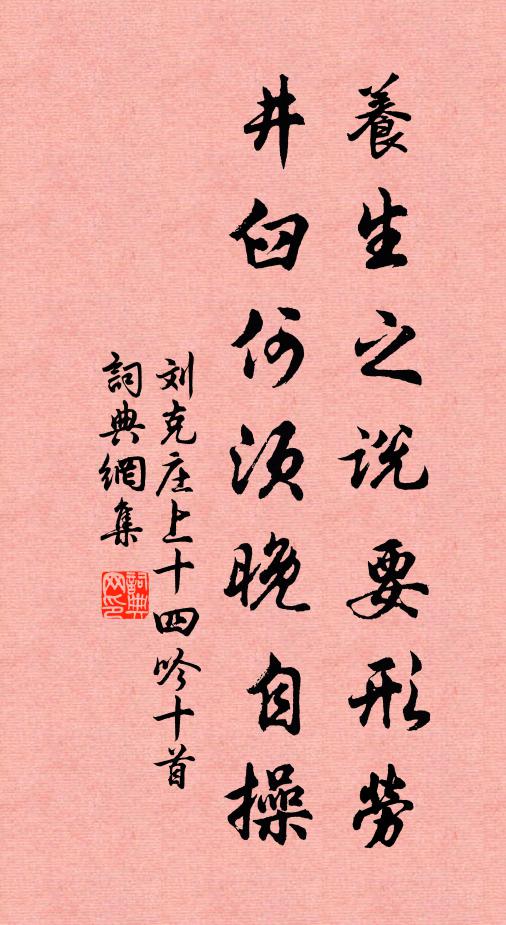 養生之説要形勞
井臼何須晚自操
刘克庄上十四吟十首
詞典網集
詞典网印